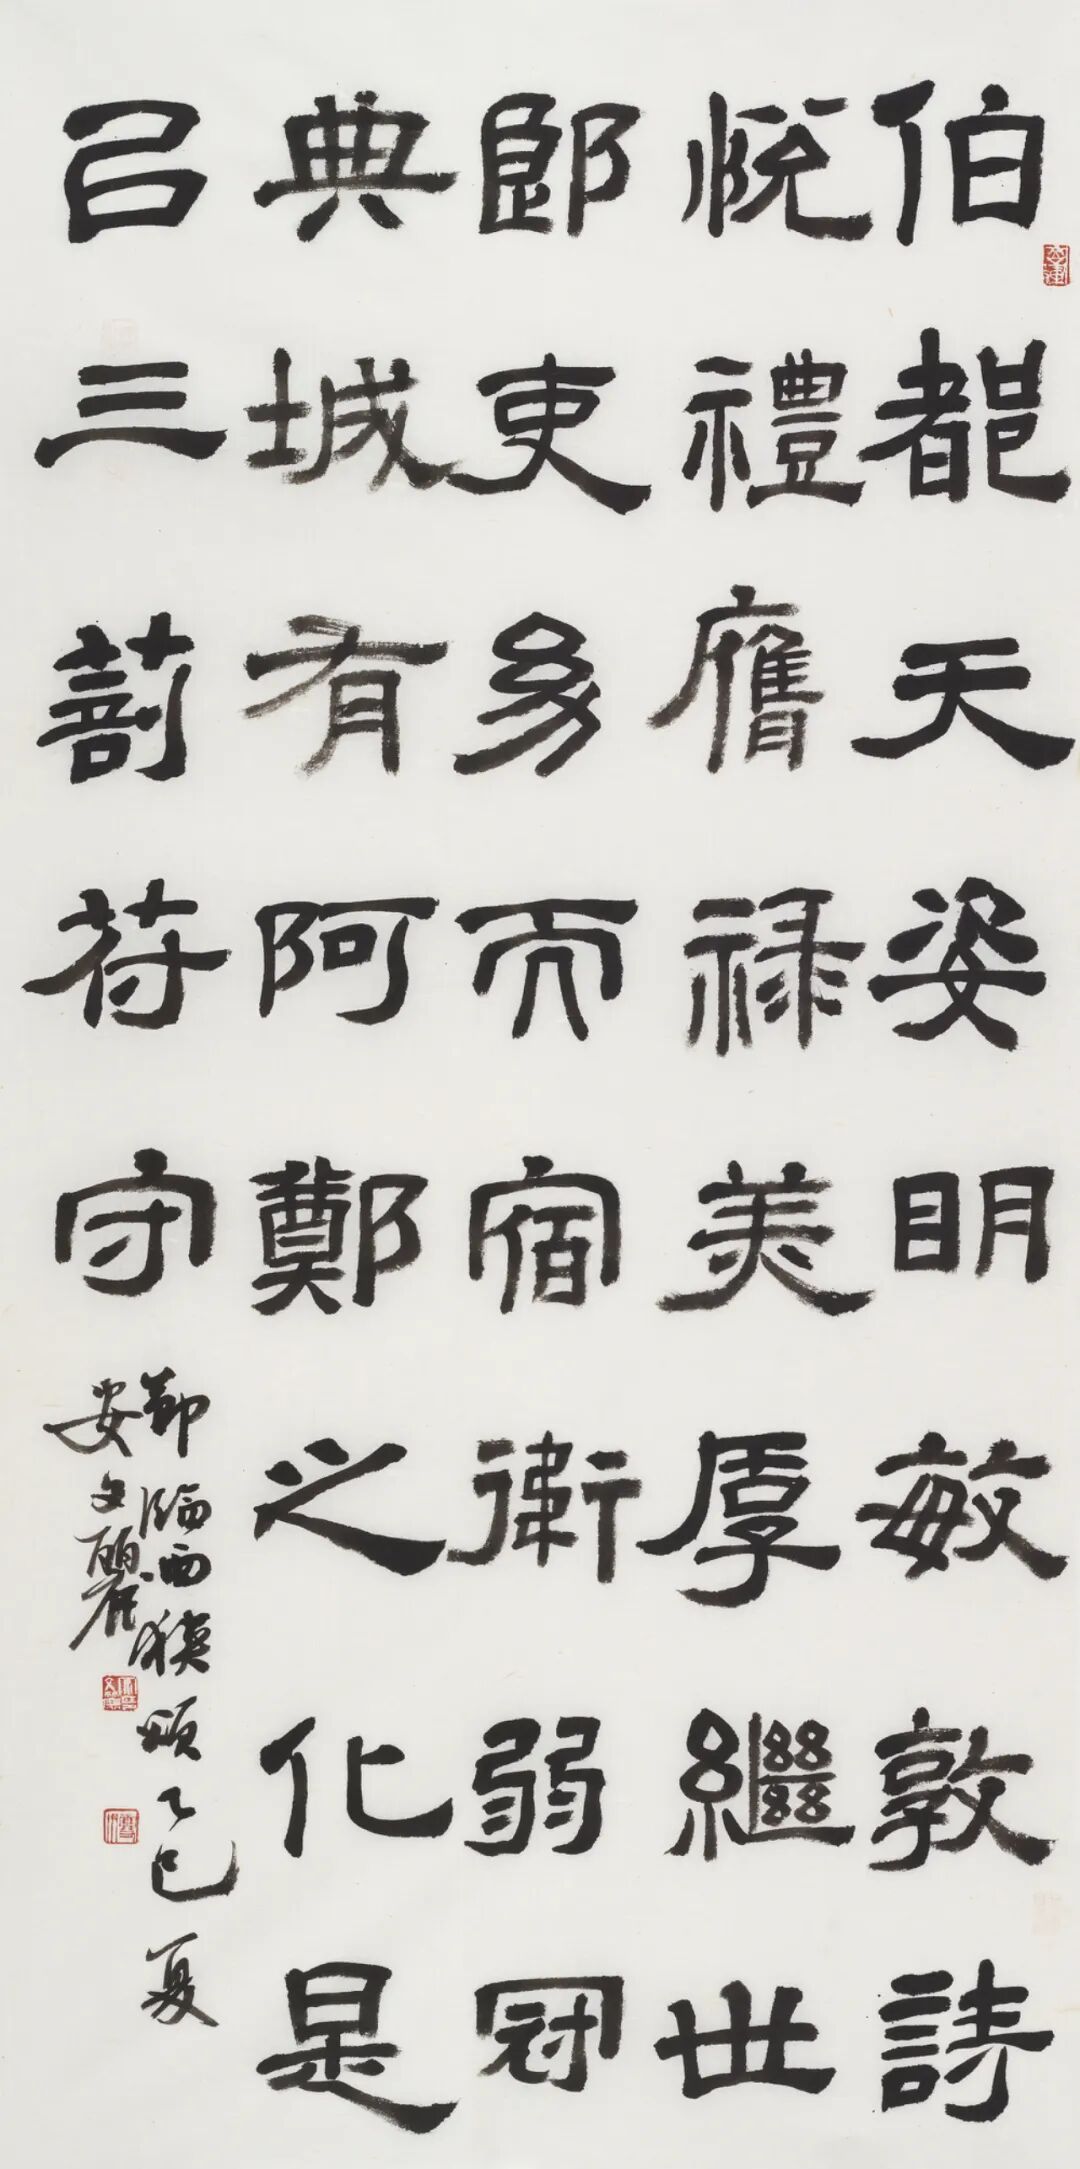 伯都天姿明敏敦詩
悅禮膺祿美厚繼世
郎吏幼而宿衛弱冠
典城有阿鄭之化是
㠯三剖苻守
節臨西狹頌乙巳夏
安文麗